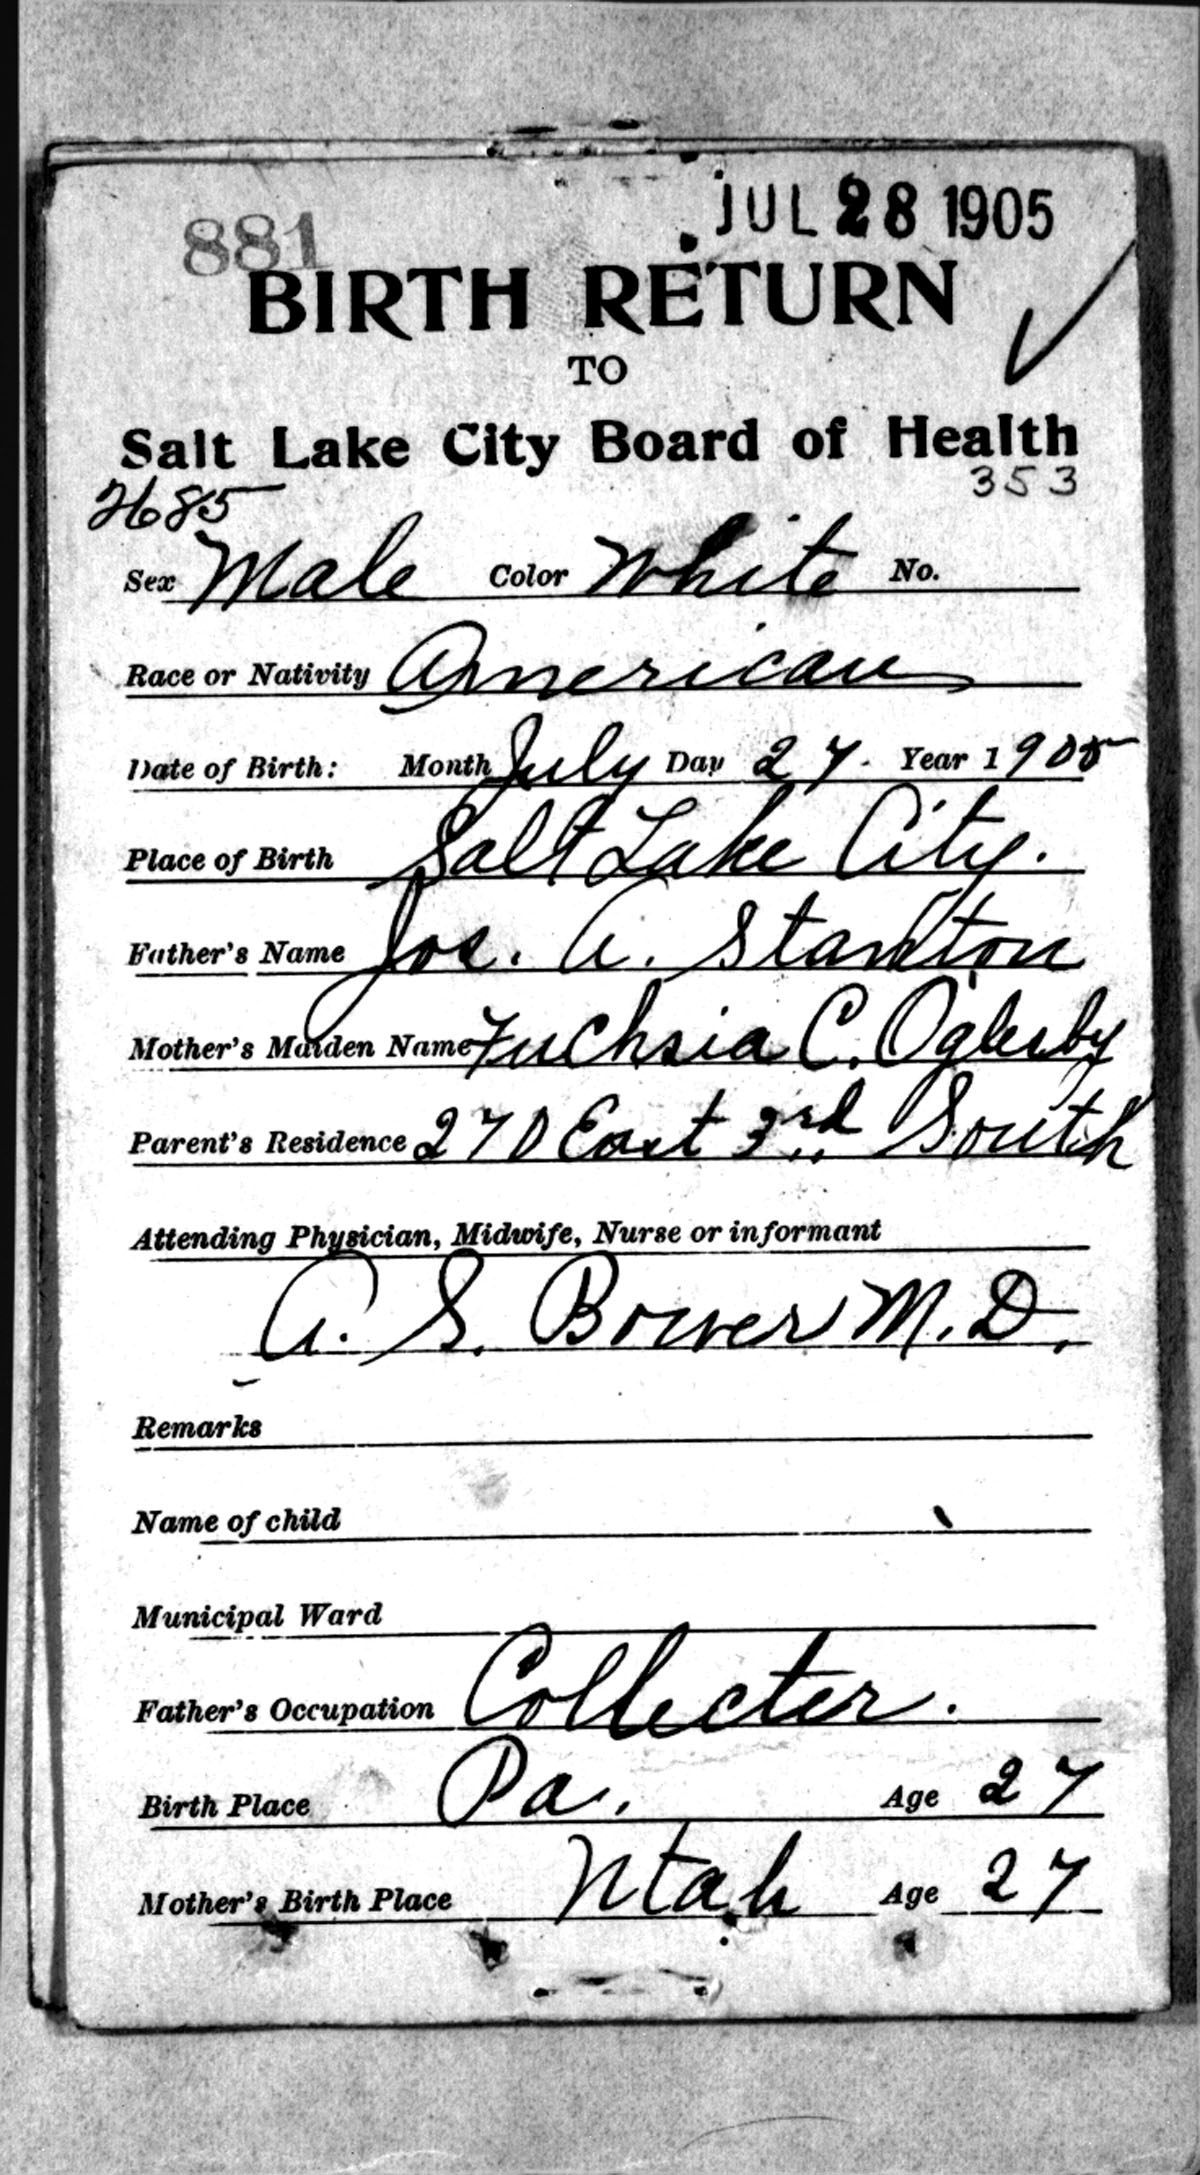 JUL 28 1905
881
BIRTH RETURN
TO
Salt Lake City Board of Health
353
2685
Sex Male Color White No.
Race or Nativity American
Date of Birth: Month July Day 27. Year 1905
Place of Birth Salt Lake City.
Father's Name Jos. A. Stanton
Mother's Maiden Name Fuchsia C. Oglesby
Parent's Residence 270 East 3rd South
Attending Physician, Midwife, Nurse or informant
A. S. Bower M.D.
Remarks
Name of child
Municipal Ward
Father's Occupation Collecter.
Birth Place Pa. Age 27
Mother's Birth Place Utah Age 27